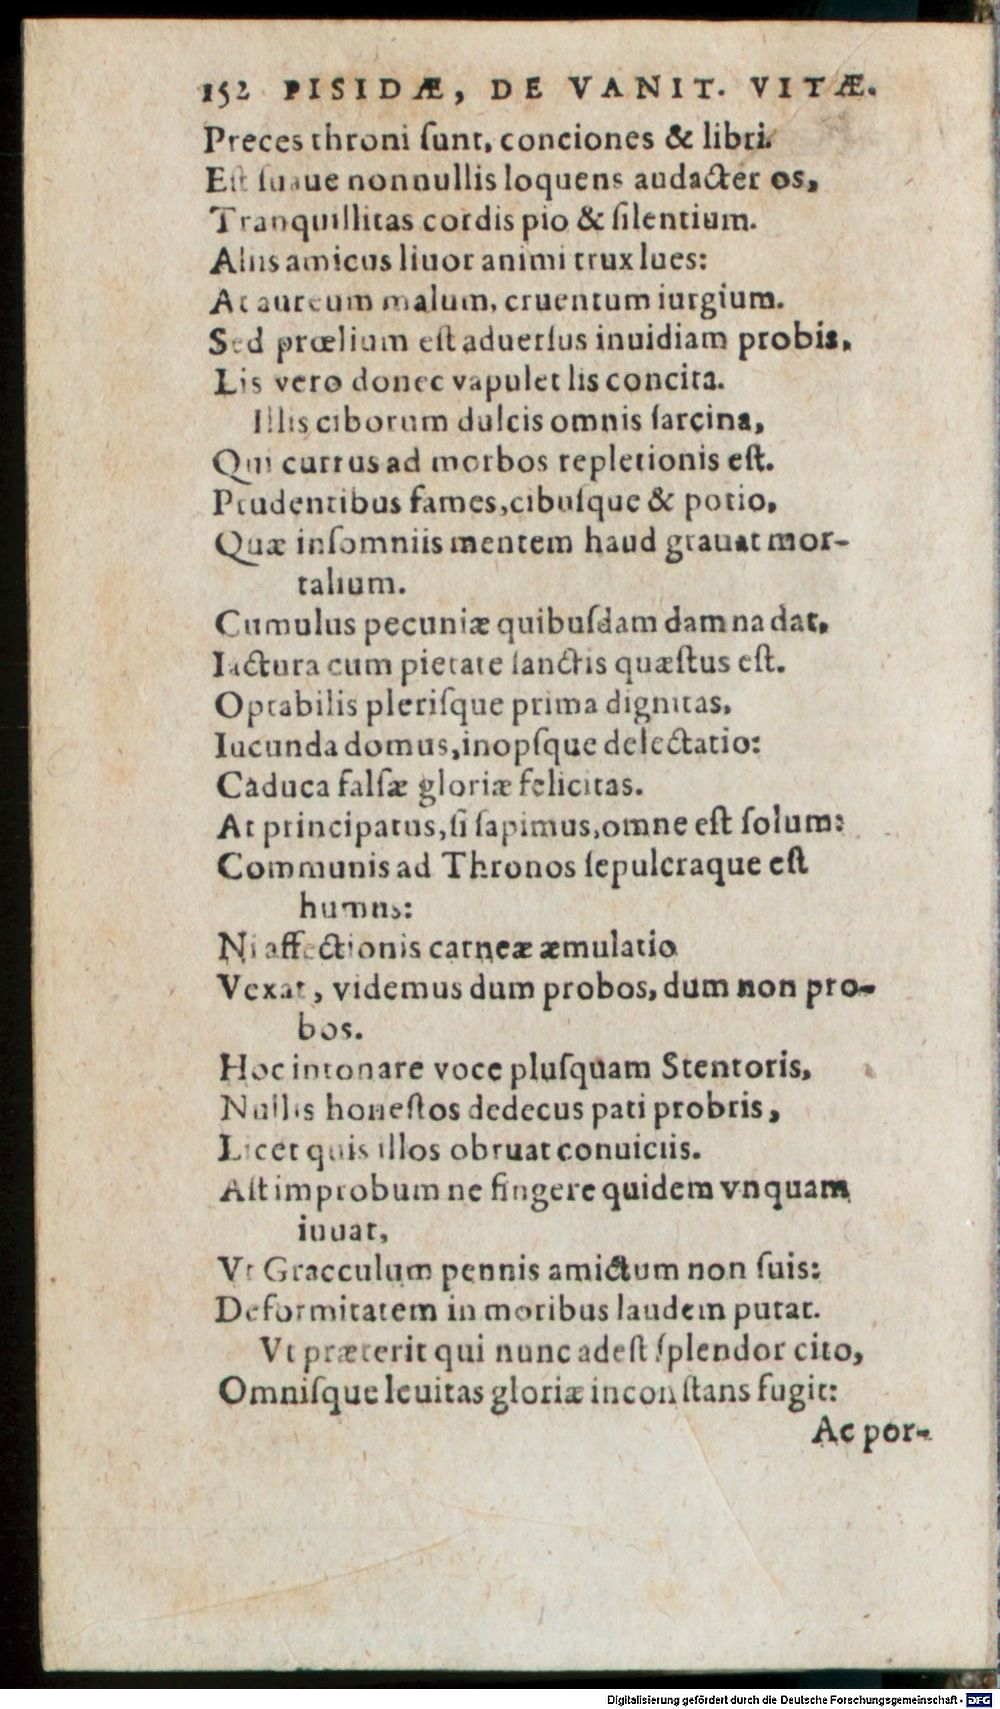 152 PISIDÆ, DE VANIT. VITÆ.
Preces throni ſunt, conciones & libri.
Eſt ſuaue nonnullis loquens audacter os,
Tranquillitas cordis pio & ſilentium.
Aliis amicus liuor animi trux lues:
At aureum malum, cruentum iurgium.
Sed prœlium eſt aduerſus inuidiam probis,
Lis vero donec vapulet lis concita.
Illis ciborum dulcis omnis ſarcina,
Qui currus ad morbos repletionis eſt.
Prudentibus fames, cibuſque & potio,
Quæ inſomniis mentem haud grauat mor-
talium.
Cumulus pecuniæ quibuſdam damna dat,
Iactura cum pietate ſanctis quæſtus eſt.
Optabilis pleriſque prima dignitas,
Iucunda domus, inopſque delectatio:
Caduca falſæ gloriæ felicitas.
At principatus, ſi ſapimus, omne eſt ſolum:
Communis ad Thronos ſepulcraque eſt
humus:
Ni affectionis carneæ æmulatio
Vexat, videmus dum probos, dum non pro-
bos.
Hoc intonare voce pluſquam Stentoris,
Nullis honeſtos dedecus pati probris,
Licet quis illos obruat conuiciis.
Aſt improbum ne fingere quidem vnquam
iuuat,
Vt Gracculum pennis amictum non ſuis:
Deformitatem in moribus laudem putat.
Vt præterit qui nunc adeſt ſplendor cito,
Omniſque leuitas gloriæ inconſtans fugit:
Ac por-
Digitalisierung gefördert durch die Deutsche Forschungsgemeinschaft - DFG